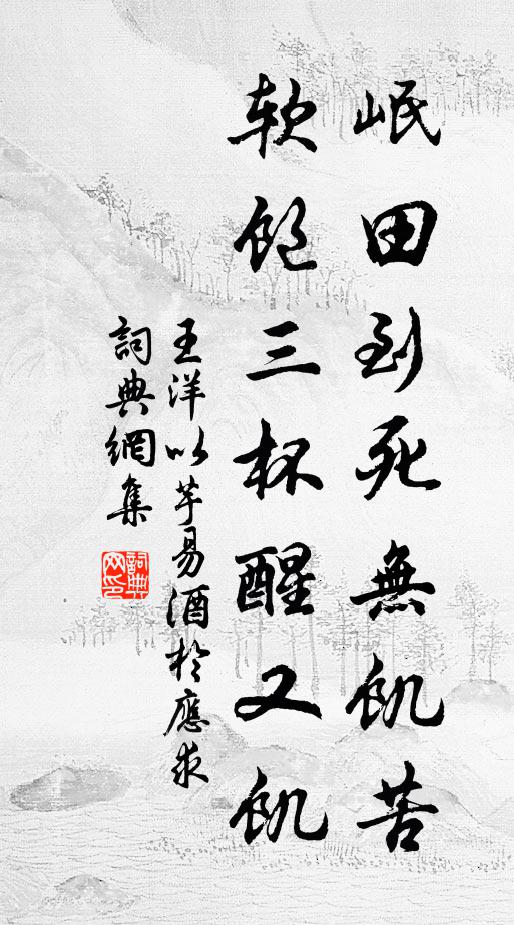 岷田到死無飢苦
軟飽三杯醒又飢
王洋以芋易酒於應求
詞典網集
詞典
网印